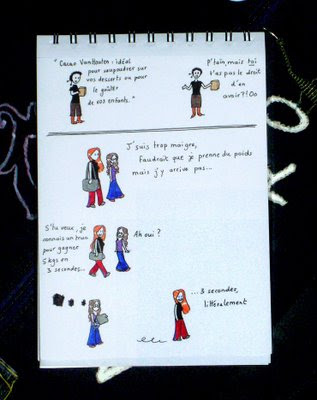 "Cacao VanHouten : idéal
pour saupoudrer sur
vos desserts ou pour
le goûter
de vos enfants."
P'tain, mais toi
t'as pas le droit
d'en
avoir ?! Oo
J'suis trop maigre,
faudrait que je prenne du poids
mais j'y arrive pas...
S'tu veux, je
connais un truc
pour gagner
5 kgs en
3 secondes...
Ah oui ?
...3 secondes,
littéralement